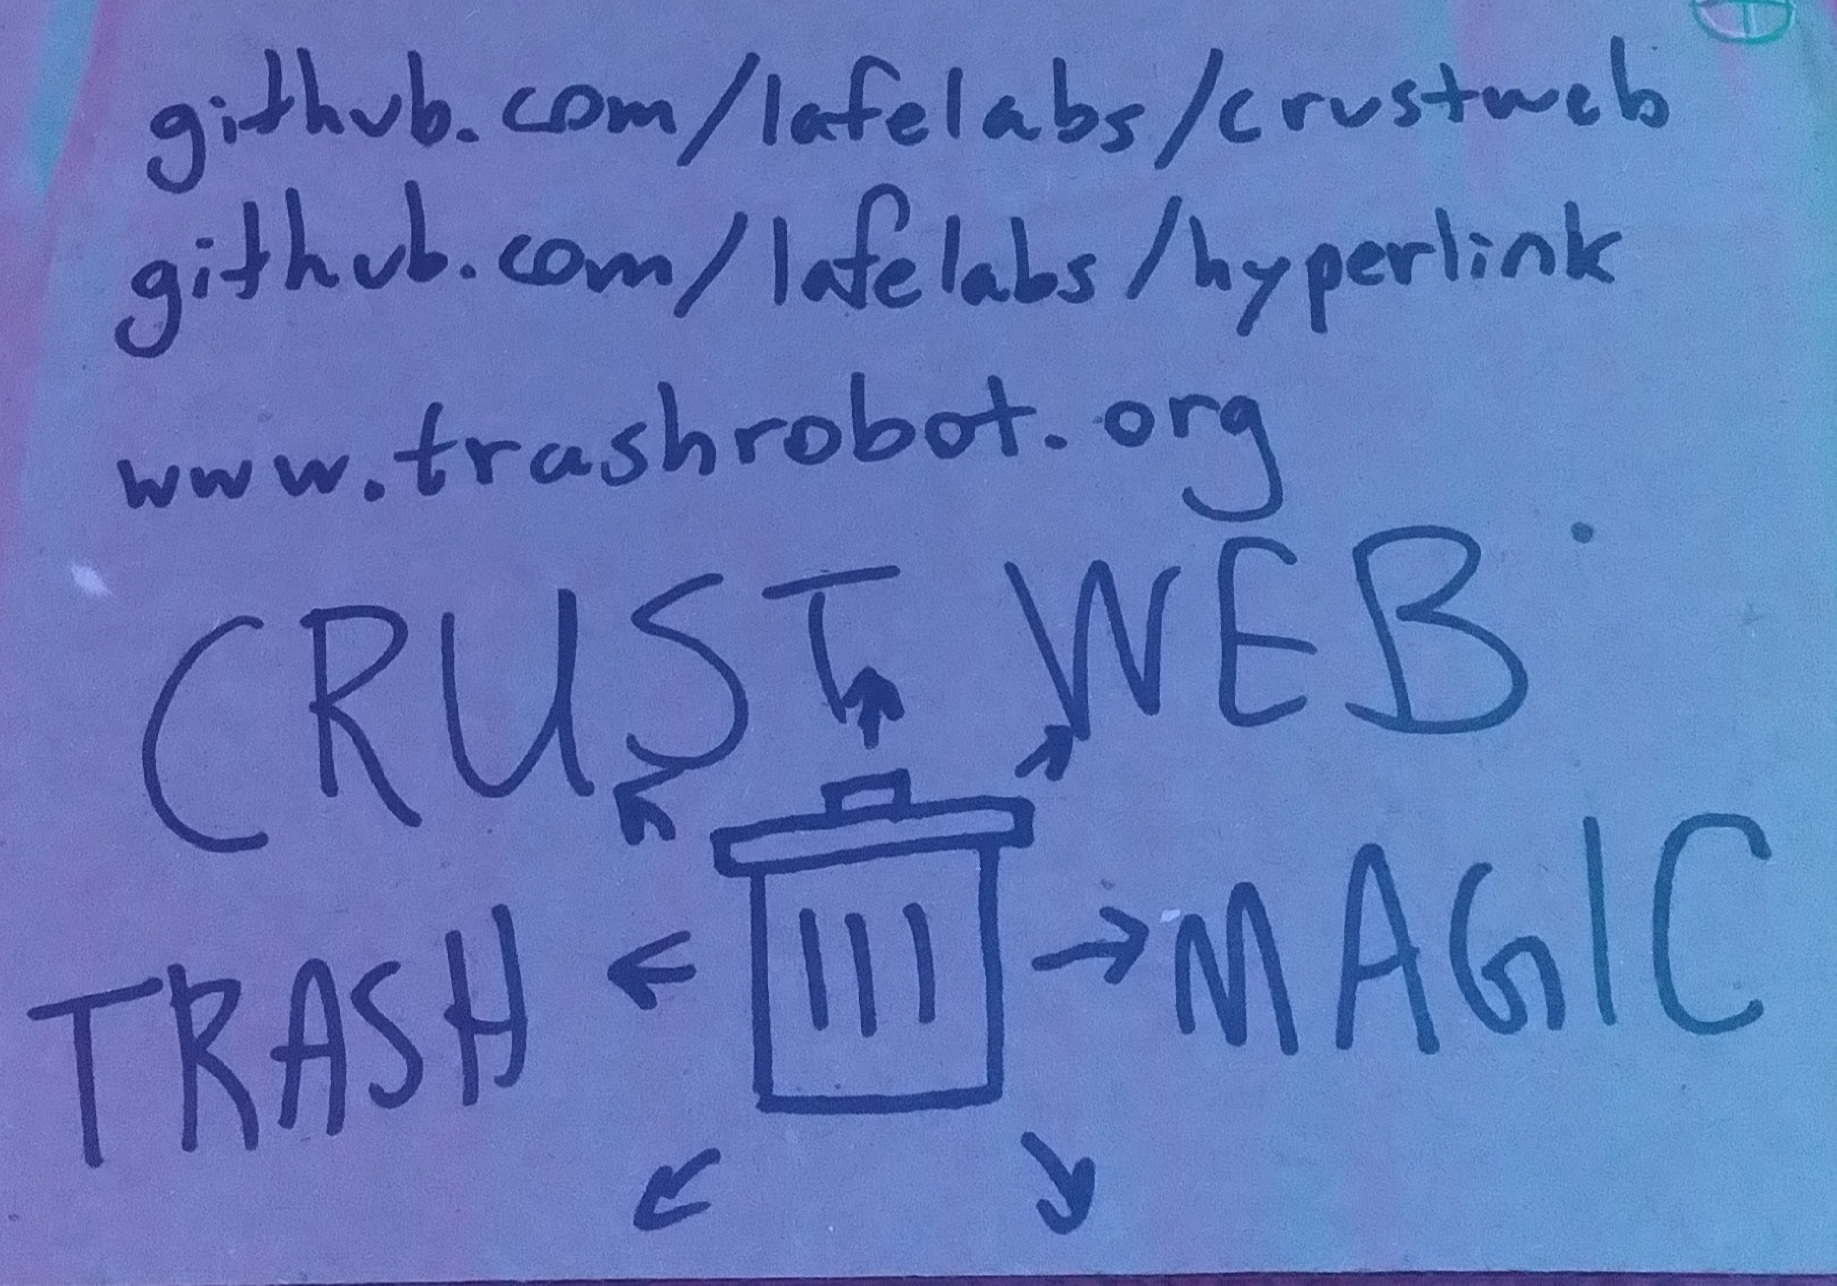 github.com/lafelabs/crustweb
github.com/lafelabs/hyperlink
www.trashrobot.org
CRUST WEB
TRASH MAGIC